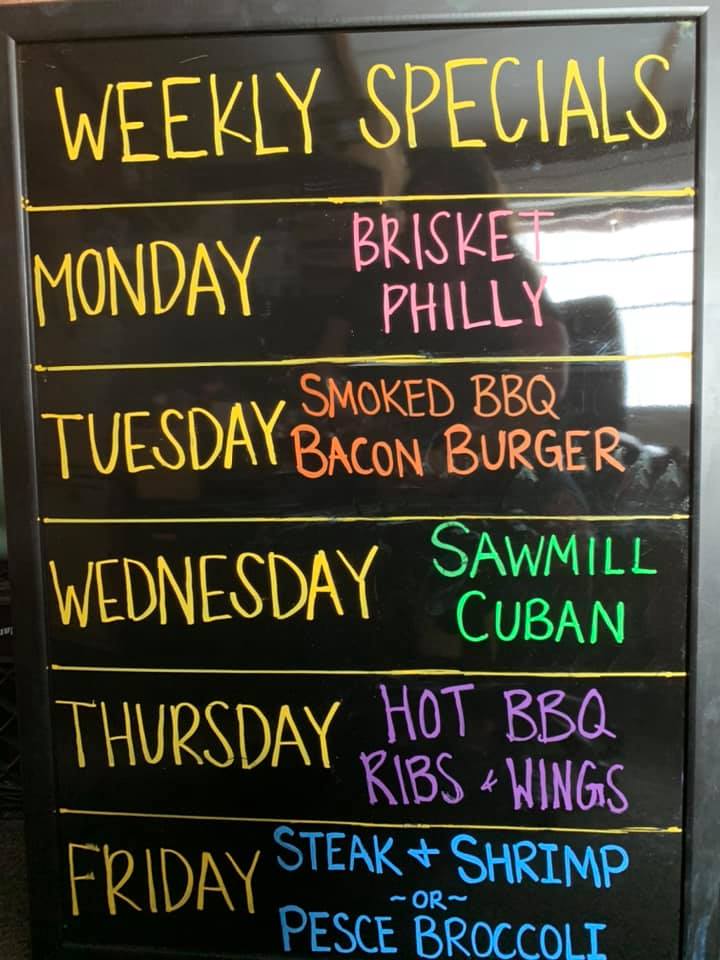 WEEKLY SPECIALS
MONDAY
BRISKET
PHILLY
TUESDAY
SMOKED BBQ
BACON BURGER
WEDNESDAY
SAWMILL
CUBAN
THURSDAY
HOT BBQ
RIBS & WINGS
FRIDAY
STEAK & SHRIMP
~OR~
PESCE BROCCOLI